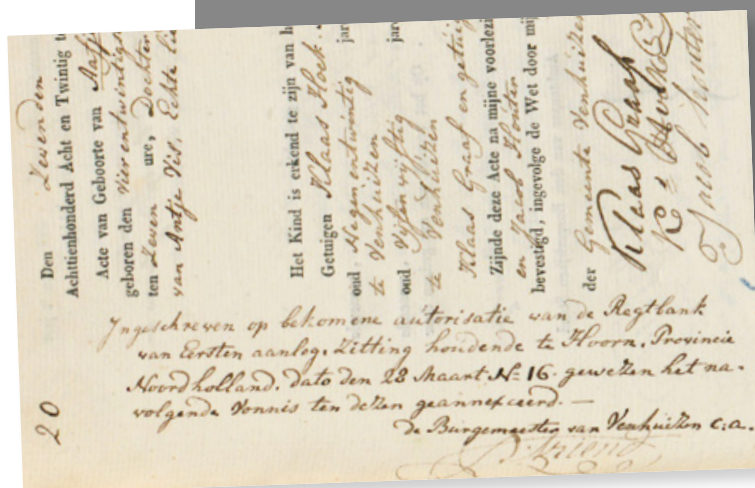 Den Zevenden
Achttienhonderd Acht en Twintig
Acte van Geboorte van Aaf
geboren den Vier en twintigs
ten Zeven ure, Dochter
van Antje Vis, Echte
Het Kind is erkend te zijn van
Getuigen Klaas Hock
oud Negen entwintig jar
te Venhuizen
oud Vijf en vijftig jar
te Venhuizen
Klaas Graaf en getuig
Zijnde deze Acte na mijne voorlez
en Jacob Houter
bevestigd, ingevolge de Wet door mij
der Gemeente Venhuizen
Klaas Graaf
Jacob Houter
20
Ingeschreven op bekomene autorisatie van de Regtbank
van Eersten aanleg. Zitting houdende te Hoorn, Provincie
Noordholland. dato den 28 Maart No 16. gewezen het na-
volgende Vonnis ten dezen geannexceerd. —
de Burgemeester van Venhuizen c:a.